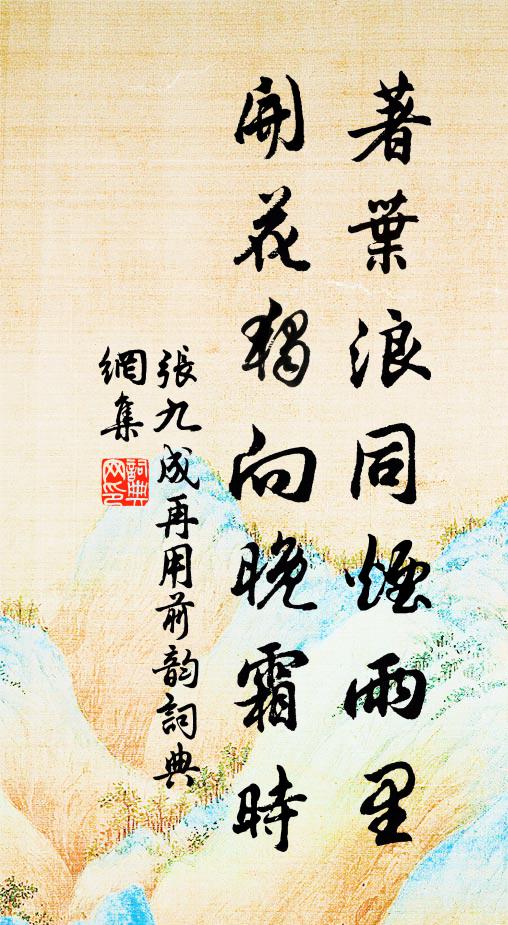 著葉浪同煙雨里
開花獨向晚霜時
張九成再用前韵詞典
網集
詞典
网印